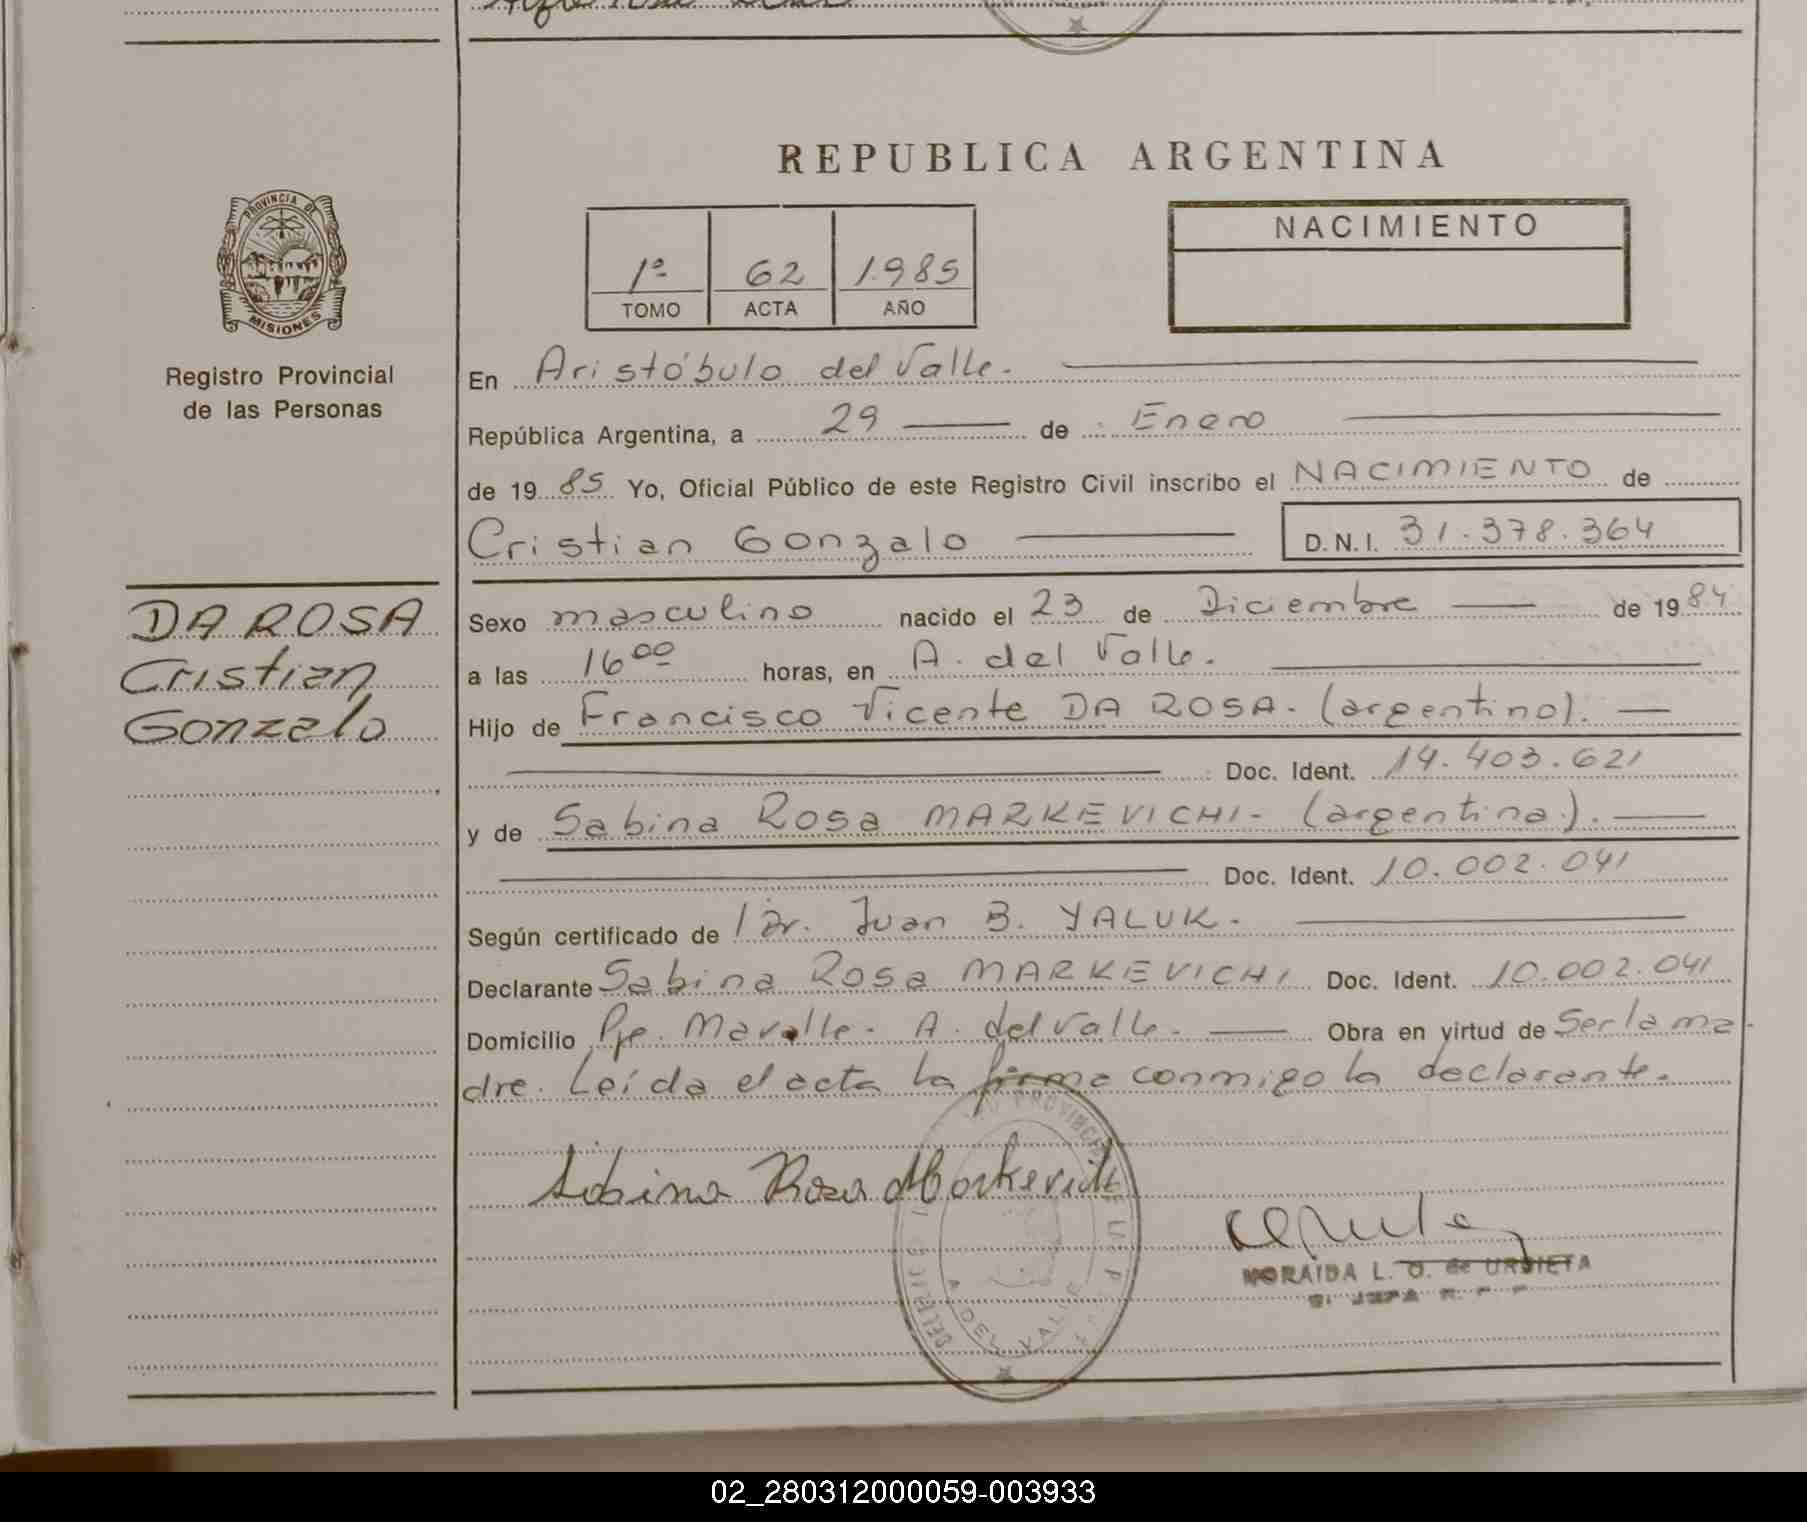 REPUBLICA ARGENTINA
PROVINCIA DE
MISIONES
Registro Provincial
de las Personas
1º 62 1.985
TOMO ACTA AÑO
NACIMIENTO
En Aristóbulo del Valle.
República Argentina, a 29 de Enero
de 1985 Yo, Oficial Público de este Registro Civil inscribo el NACIMIENTO de
Cristian Gonzalo D.N.I. 31.378.364
DA ROSA
Cristian
Gonzalo
Sexo masculino nacido el 23 de Diciembre de 1984
a las 16 00 horas, en A. del Valle.
Hijo de Francisco Vicente DA ROSA. (argentino).
Doc. Ident. 14.403.621
y de Sabina Rosa MARKEVICHI- (argentina).
Doc. Ident. 10.002.041
Según certificado de Dr. Juan B. YALUK.
Declarante Sabina Rosa MARKEVICHI Doc. Ident. 10.002.041
Domicilio A. del Valle. Obra en virtud de Ser la ma-
dre. Leída el acta la firma conmigo la declarante.
Sabina Rosa Markevichi
A. DEL VALLE
MORAIDA L. O. de URBIETA
02_280312000059-003933